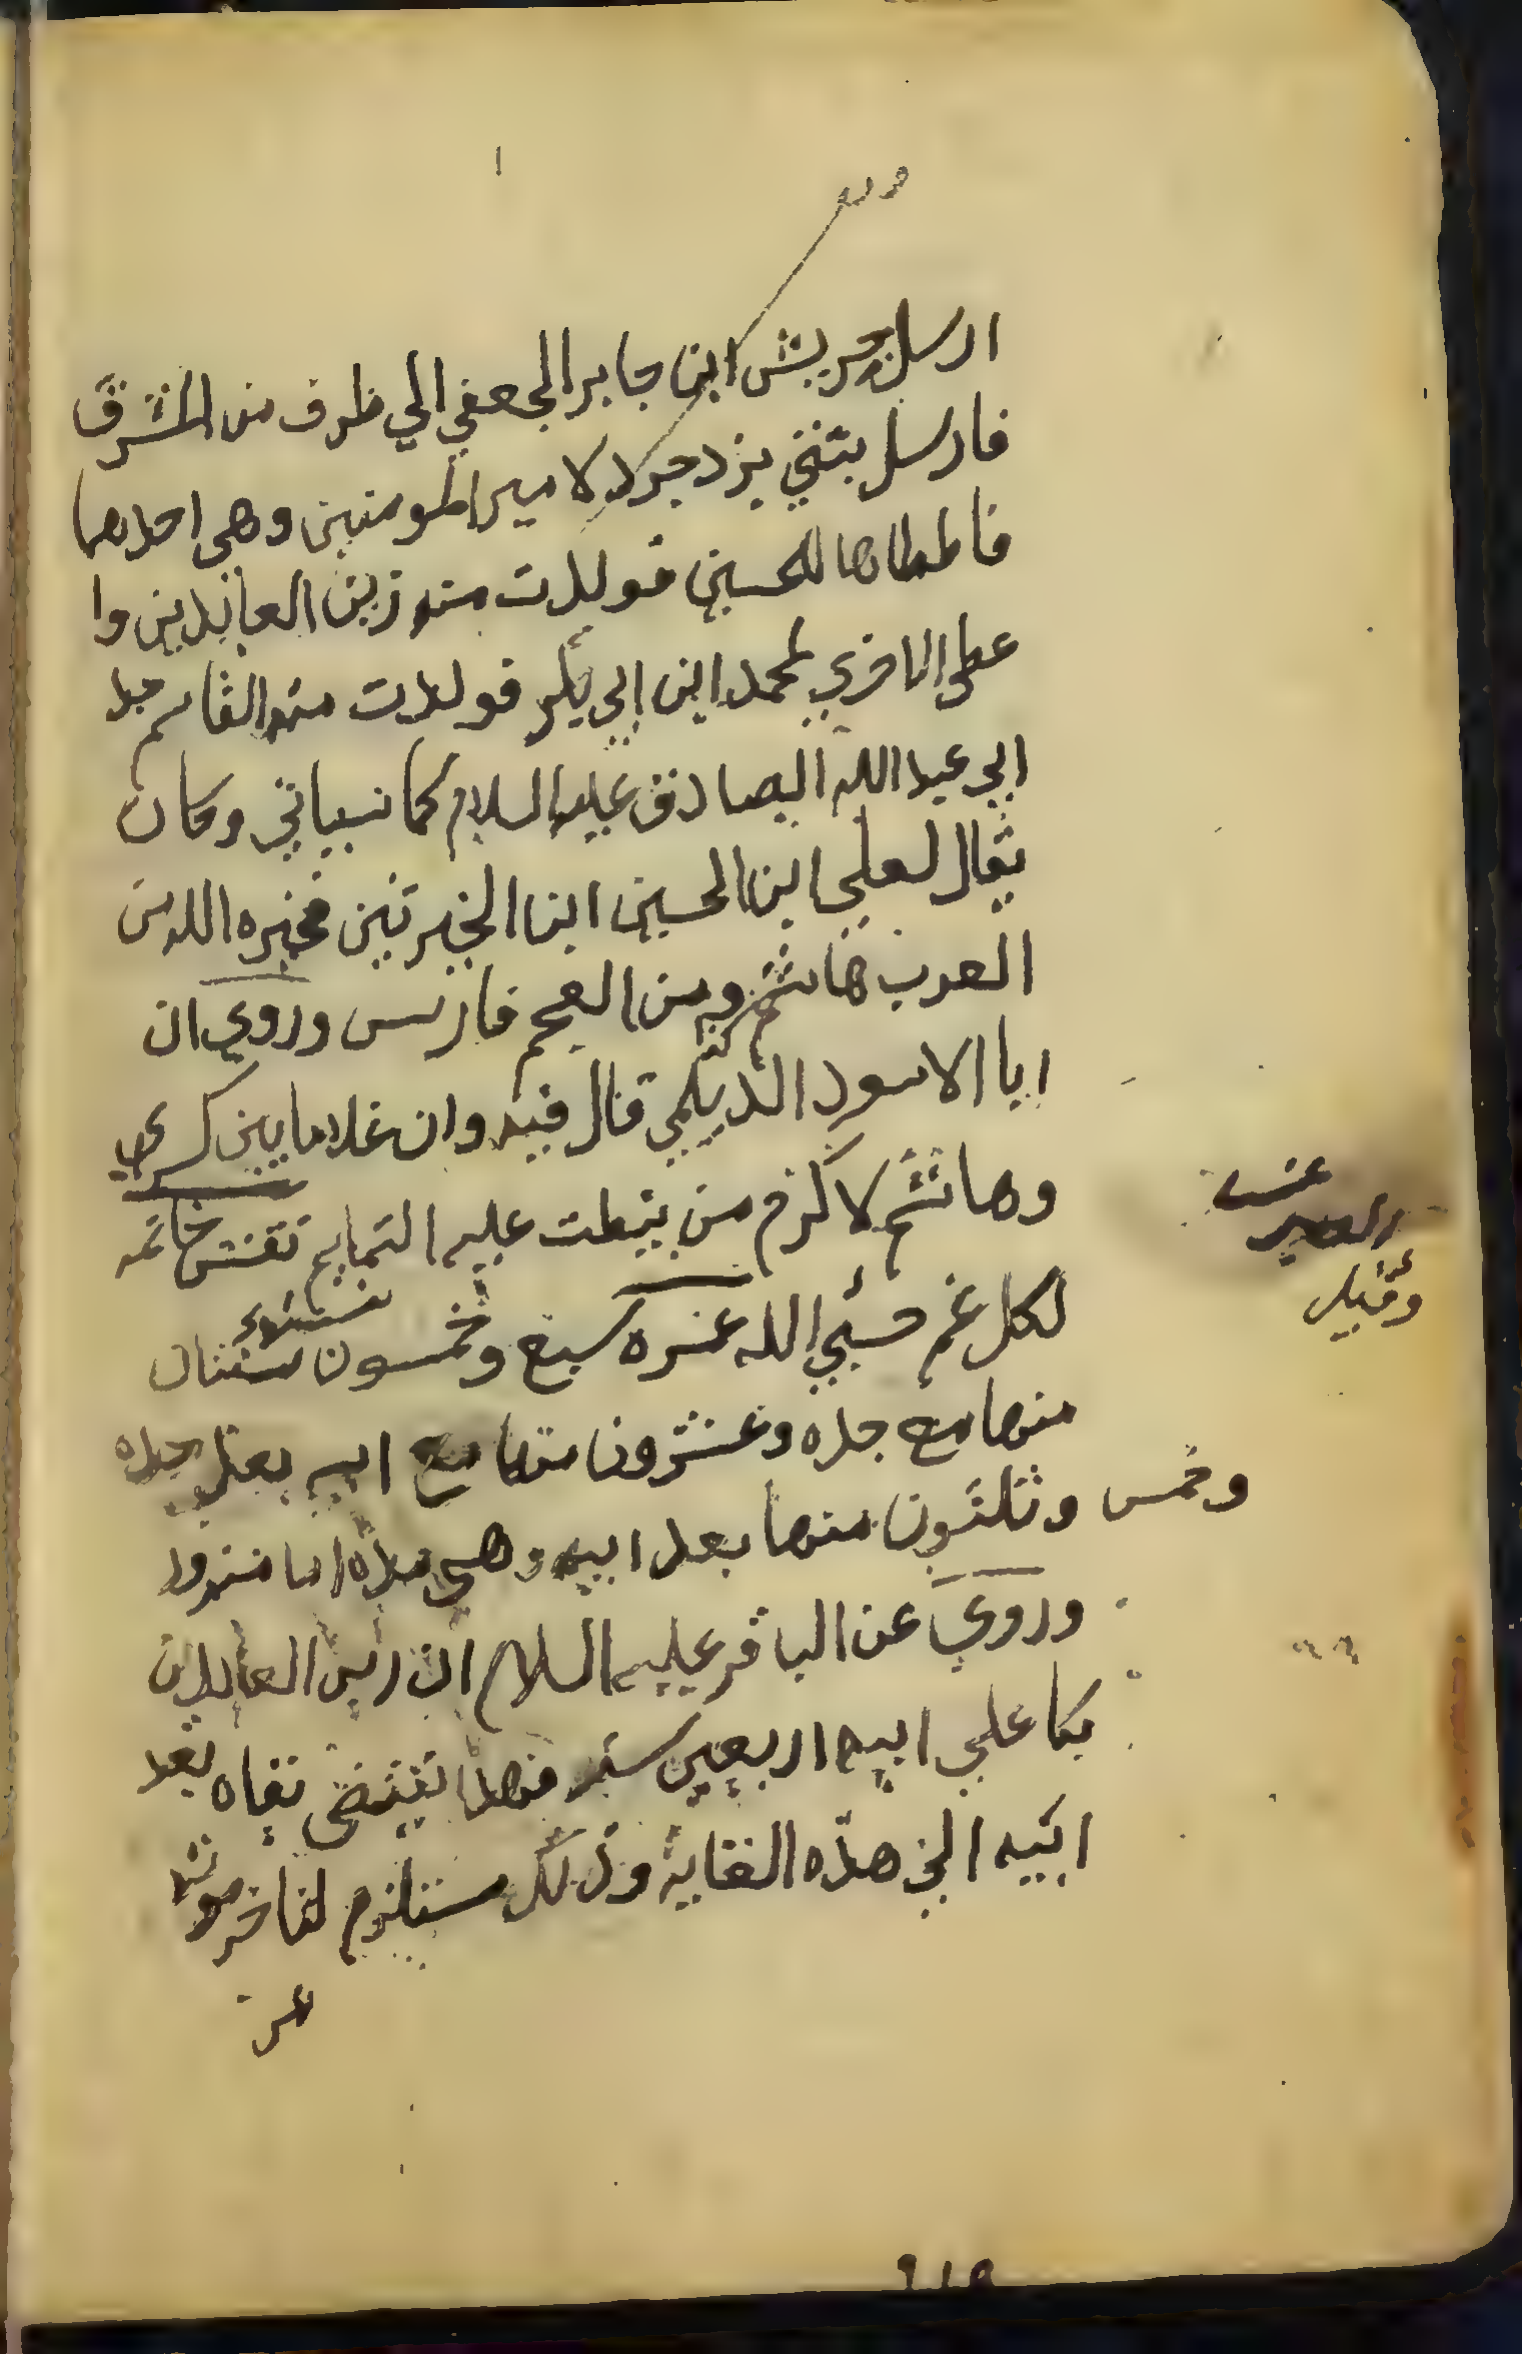 ارسل حريش ابن جابر الجعفي الي طرف من المشرق
فارسل بنتي يزدجرد لامير المومنين وهى احداهما
فاعطاها للحسين فولدت منه زين العابدين وا
عطى الاخري لمحمد ابن ابي بكر فولدت منه القاسم جد
ابي عبد الله الصادق عليه السلام كما سياتي وكان
يقال لعلي ابن الحسين ابن الخيرتين فخيره الله من
العرب هاشم ومن العجم فارس وروي ان
ابا الاسود الديلمي قال فيه وان غلاما بين كسري
وهاشم لاكرم من نيطت عليه التمايم نقش خاتمه
لكل غم حسبي الله عمره سبع وخمسون سنتان
منها مع جده وعشرون منها مع ابيه بعد جده
وخمس وثلثون منها بعد ابيه وهى مدة امامته
وروي عن الباقر عليه السلام ان زين العابدين
بكا علي ابيه اربعين سنه فهذا يقتضى بقاه بعد
ابيه الي هذه الغاية وذلك مستلزم لتاخر موته
وقيل